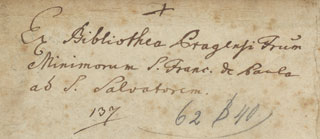 Ex Bibliotheca Pragensi Frum
Minimorum S. Franc. de Paula
ad S. Salvatorem.
137
62 D 40